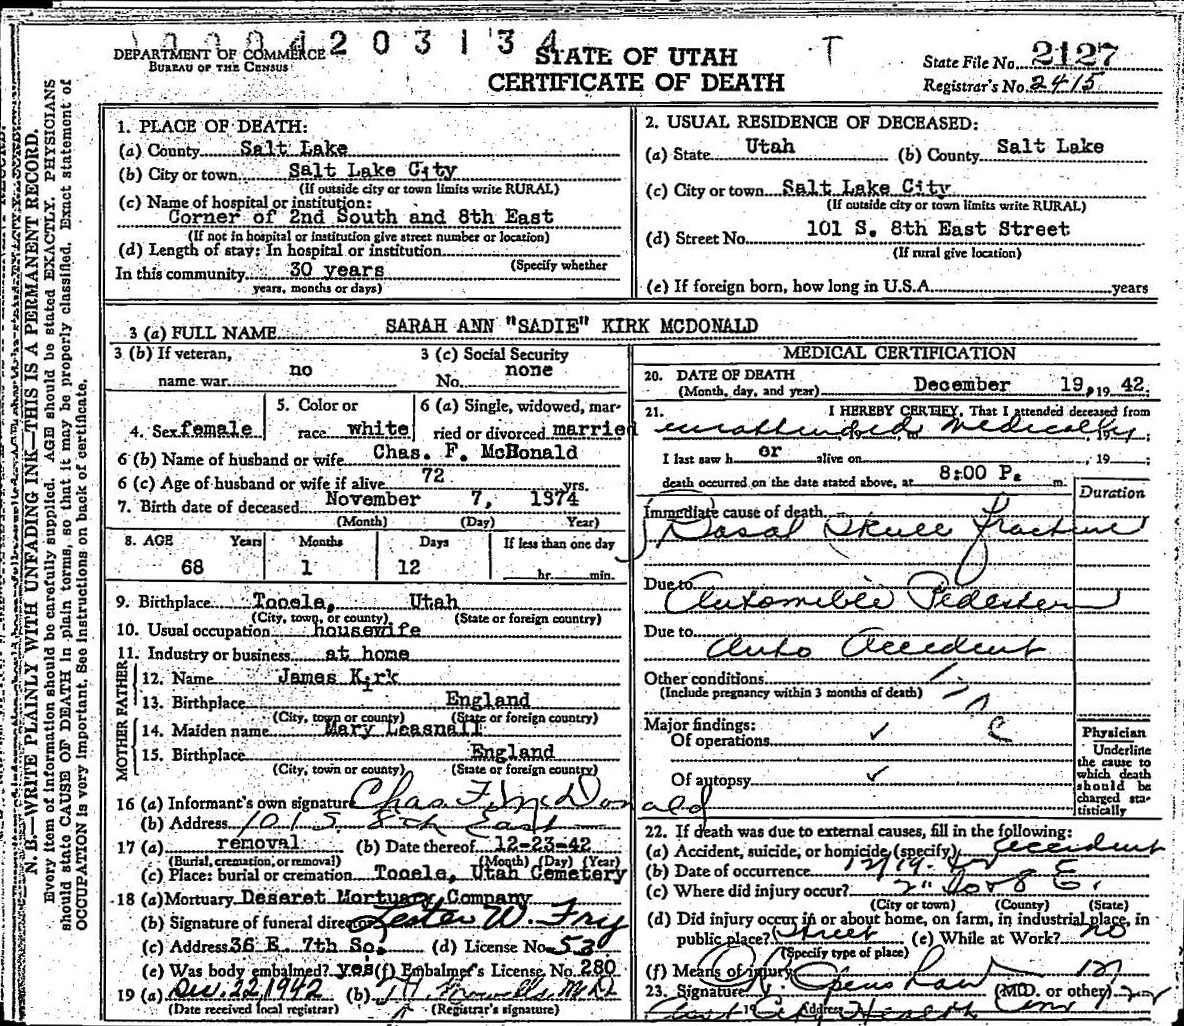 DEPARTMENT OF COMMERCE
BUREAU OF THE CENSUS
4 2 0 3 1 3 4
STATE OF UTAH
CERTIFICATE OF DEATH
T
State File No. 2127
Registrar's No. 2415
N. B.—WRITE PLAINLY WITH UNFADING INK—THIS IS A PERMANENT RECORD.
Every item of information should be carefully supplied. AGE should be stated EXACTLY. PHYSICIANS
should state CAUSE OF DEATH in plain terms, so that it may be properly classified. Exact statement of
OCCUPATION is very important. See instructions on back of certificate.
1. PLACE OF DEATH:
(a) County Salt Lake
(b) City or town Salt Lake City
(If outside city or town limits write RURAL)
(c) Name of hospital or institution:
Corner of 2nd South and 8th East
(If not in hospital or institution give street number or location)
(d) Length of stay: In hospital or institution
(Specify whether
In this community 30 years
years, months or days)
2. USUAL RESIDENCE OF DECEASED:
(a) State Utah (b) County Salt Lake
(c) City or town Salt Lake City
(If outside city or town limits write RURAL)
(d) Street No. 101 S. 8th East Street
(If rural give location)
(e) If foreign born, how long in U.S.A. years
3 (a) FULL NAME SARAH ANN "SADIE" KIRK MCDONALD
3 (b) If veteran,
name war no
3 (c) Social Security
No. none
4. Sex female
5. Color or
race white
6 (a) Single, widowed, mar-
ried or divorced married
6 (b) Name of husband or wife Chas. F. McDonald
6 (c) Age of husband or wife if alive 72 yrs.
7. Birth date of deceased November 7, 1874
(Month) (Day) Year)
8. AGE Years Months Days If less than one day
68 1 12 hr. min.
9. Birthplace Tooele, Utah
(City, town, or county) (State or foreign country)
10. Usual occupation housewife
11. Industry or business at home
FATHER
12. Name James Kirk
13. Birthplace England
(City, town or county) (State or foreign country)
MOTHER
14. Maiden name Mary Leasnall
15. Birthplace England
(City, town or county) (State or foreign country)
16 (a) Informant's own signature Chas. F. McDonald
(b) Address 101 S. 8th East
17 (a) removal (b) Date thereof 12-23-42
(Burial, cremation, or removal) (Month) (Day) (Year)
(c) Place: burial or cremation Tooele, Utah Cemetery
18 (a) Mortuary Deseret Mortuary Company
(b) Signature of funeral director Lester W. Fry
(c) Address 36 E. 7th So. (d) License No. 530
(e) Was body embalmed? yes (f) Embalmer's License No. 280
19 (a) Dec. 22, 1942 (b) M.D.
(Date received local registrar) (Registrar's signature)
MEDICAL CERTIFICATION
20. DATE OF DEATH
(Month, day, and year) December 19, 19 42.
21. I HEREBY CERTIFY, That I attended deceased from
unattended medically 19
I last saw h er alive on , 19 ;
death occurred on the date stated above, at 8:00 P. m.
Duration
Immediate cause of death
Basal Skull fracture
Due to
Automobile Pedestrian
Due to
Auto Accident
Other conditions
(Include pregnancy within 3 months of death)
Major findings:
Of operations ✓
Of autopsy ✓
Physician
Underline
the cause to
which death
should be
charged sta-
tistically
22. If death was due to external causes, fill in the following:
(a) Accident, suicide, or homicide (specify) accident
(b) Date of occurrence 12/19
(c) Where did injury occur? 2nd So & 8 E.
(City or town) (County) (State)
(d) Did injury occur in or about home, on farm, in industrial place, in
public place? Street (e) While at Work? no
(Specify type of place)
(f) Means of injury
23. Signature (M.D. or other)
Address City Health